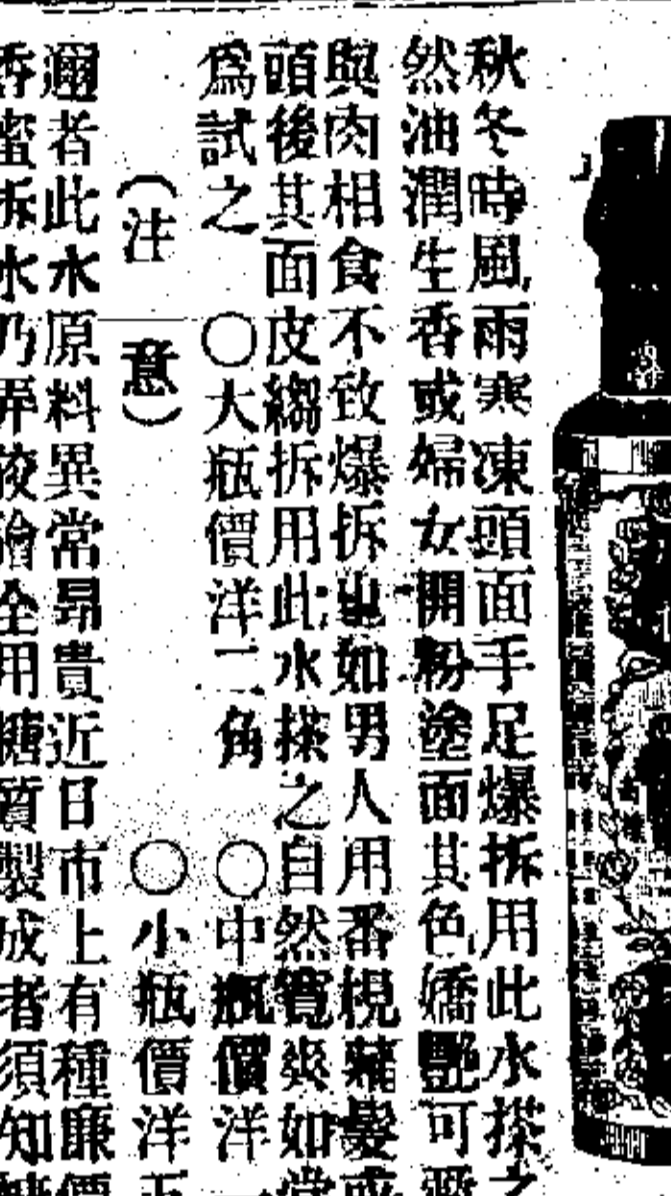 秋冬時風雨寒凍頭面手足爆拆用此水搽之
然油潤生香或婦女開粉塗面其色嬌艷可愛
與肉相食不致爆拆也如男人用番梘薙髮或
頭後其面皮縐拆用此水搽之自然寬爽如常
爲試之 〇大瓶價洋二角 〇中瓶價洋一
〇小瓶價洋五
（注 意）
邇者此水原料異常昂貴近日市上有種廉價
香蜜拆水乃弄狡獪全用糖質製成者須知糖